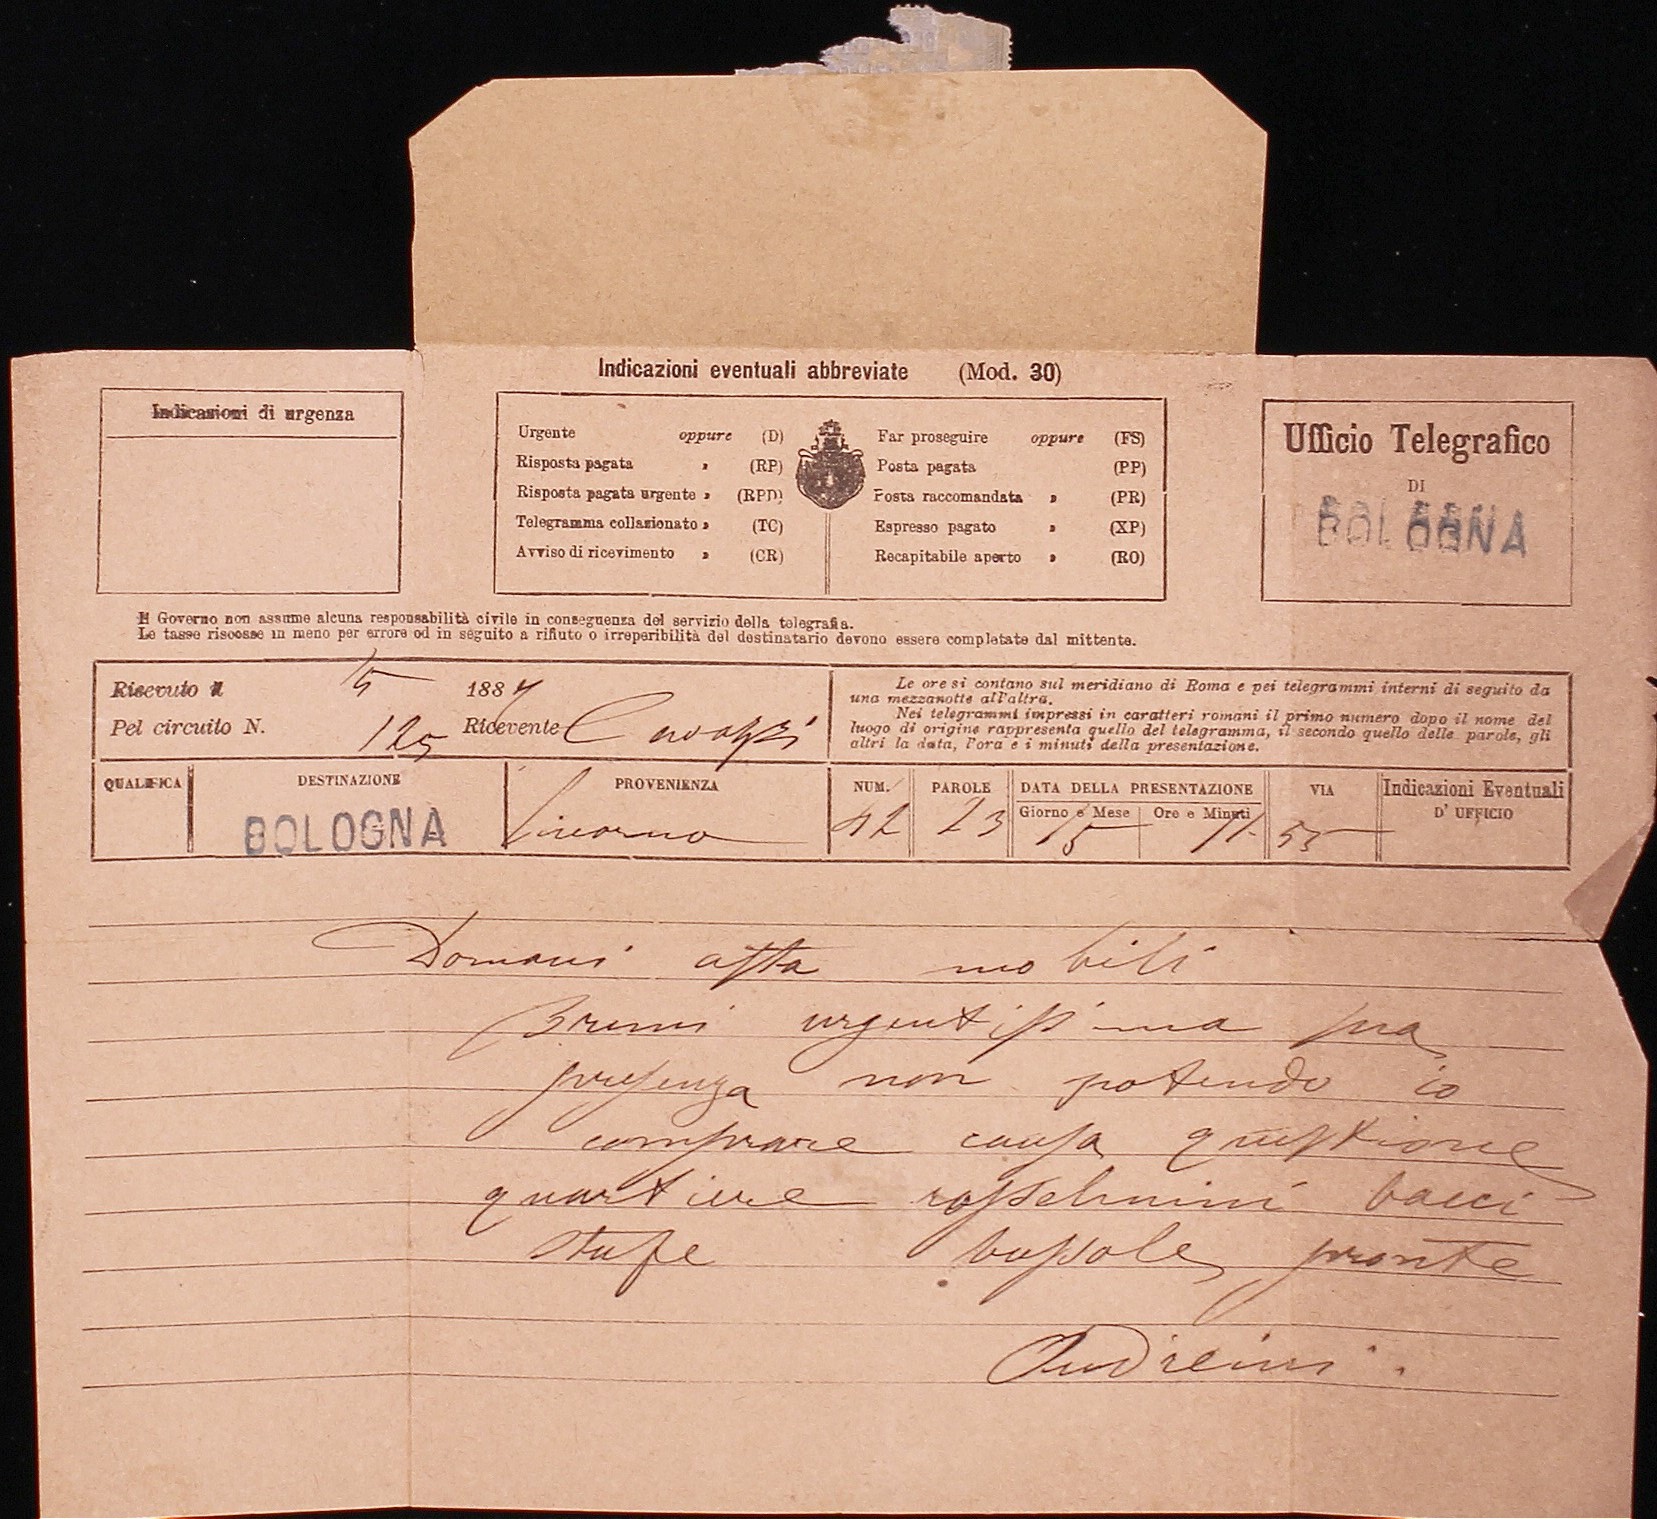 Indicazioni eventuali abbreviate (Mod. 30)
Indicazioni di urgenza
Urgente oppure (D)
Risposta pagata " (RP)
Risposta pagata urgente " (RPD)
Telegramma collazionato " (TC)
Avviso di ricevimento " (CR)
Far proseguire oppure (FS)
Posta pagata (PP)
Posta raccomandata " (PR)
Espresso pagato " (XP)
Recapitabile aperto " (RO)
Ufficio Telegrafico
DI
BOLOGNA
Il Governo non assume alcuna responsabilità civile in conseguenza del servizio della telegrafia.
Le tasse riscosse in meno per errore od in seguito a rifiuto o irreperibilità del destinatario devono essere completate dal mittente.
Ricevuto il 15 1887
Pel circuito N. 125 Ricevente Cavazzi
Le ore si contano sul meridiano di Roma e pei telegrammi interni di seguito da
una mezzanotte all'altra.
Nei telegrammi impressi in caratteri romani il primo numero dopo il nome del
luogo di origine rappresenta quello del telegramma, il secondo quello delle parole, gli
altri la data, l'ora e i minuti della presentazione.
QUALIFICA
DESTINAZIONE
BOLOGNA
PROVENIENZA
Livorno
NUM.
42
PAROLE
23
DATA DELLA PRESENTAZIONE
Giorno e Mese Ore e Minuti
15 11. 55
VIA
Indicazioni Eventuali
D' UFFICIO
Domani asta mobili
Bruni urgentissima sua
presenza non potendo io
comprare causa questione
quartiere rosselmini bacci
stufe bussole pronte
Andreini.